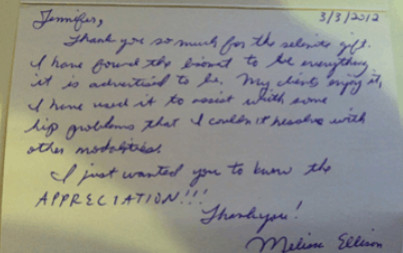 Jennifer, 3/3/2012
Thank you so much for the selenite gift.
I have found the biomat to be everything
it is advertised to be. My clients enjoy it,
I have used it to assist with some
hip problems that I couldn't resolve with
other modalities.
I just wanted you to know the
APPRECIATION!!!
Thank you!
Melissa Ellison